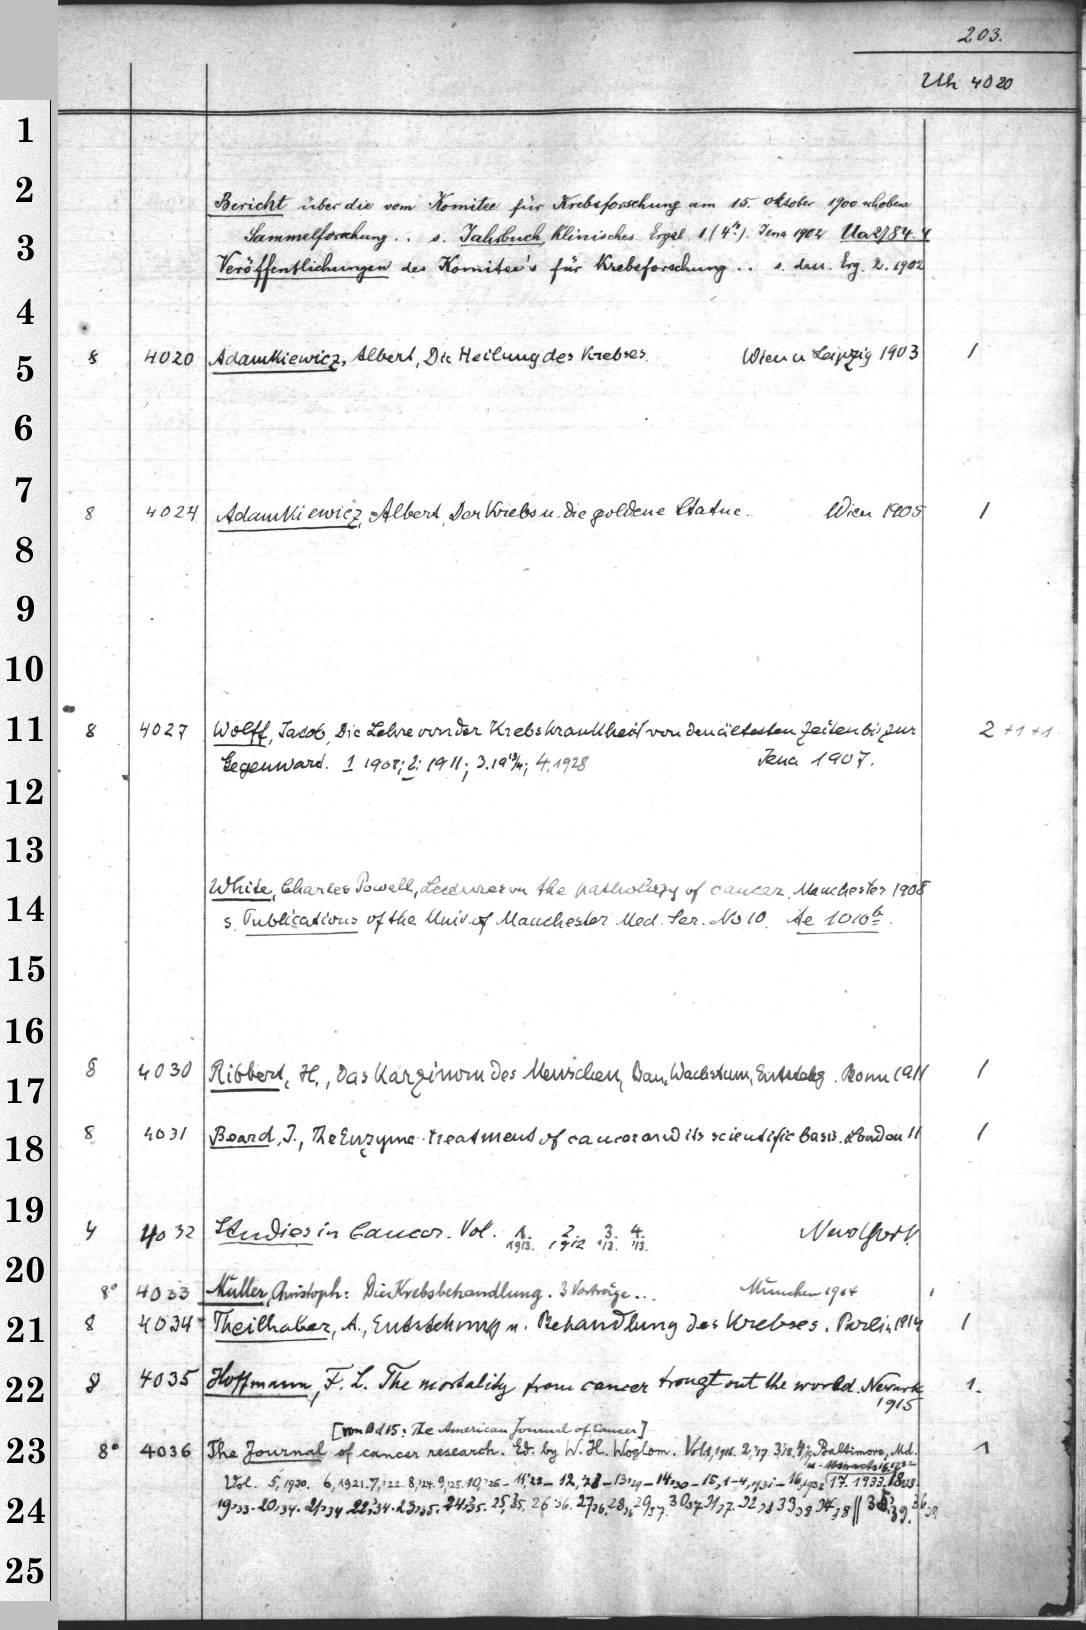 203.
Uh 4020
1
2
Bericht über die vom Komitee für Krebsforschung am 15. Oktober 1900 erhobene
3
Sammelforschung .. s. Jahrbuch, Klinisches. Ergbd. 1. Jena 1902 Ua 2184.4
Veröffentlichungen des Komitee's für Krebsforschung .. s. dass. Erg. 2. 1902
4
5
8 4020 Adamkiewicz, Albert, Die Heilung des Krebses. Wien u Leipzig 1903 1
6
7
8 4024 Adamkiewicz, Albert, Der Krebs u. die goldene Statue. Wien 1905 1
8
9
10
11
8 4027 Wolff, Jacob, Die Lehre von der Krebskrankheit von den ältesten Zeiten bis zur 2 +1 +1
Gegenward. 1 1907; 2: 1911; 3. 19 13/14; 4. 1928 Jena 1907.
12
13
White, Charles Powell, Lectures on the pathology of cancer. Manchester 1908
14
s. Publications of the Univ. of Manchester Med. Ser. No 10. Ae 1010 b.
15
16
8 4030 Ribbert, H., Das Karzinom des Menschen, Bau, Wachstum, Entstehg. Bonn 1911 1
17
18
8 4031 Beard, J., The Enzyme-treatment of cancer and its scientific basis. London 11 1
19
4 4032 Studies in Cancer. Vol. 1. 2. 3. 4. New York.
1913. 1912 '13. '13.
20
8° 4033 Müller, Christoph: Die Krebsbehandlung. 3 Vorträge... München 1914 1
21
8 4034 Theilhaber, A., Entstehung u. Behandlung des Krebses. Berlin 1914 1
22
8 4035 Hoffmann, F. L. The mortality from cancer trougt out the world. Newark 1.
1915
[von Bd 15: The American Journal of Cancer]
23
8° 4036 The Journal of cancer research. Ed. by W. H. Woglom. Vol 1, 1916. 2, '17. 3, '18. Baltimore, Md. 1
Vol. 5, 1920. 6, 1921. 7, '22. 8, '24. 9, '25. 10, '26 - 11, - 12, '28 - 13 '29 - 14, '30 - 15, 1-4, 1931 - 16, 1932 17. 1933. 18
24
19, 33 - 20, 34. 21, 34 22, 34. 23, 35. 24, 35. 25, 35. 26, 36. 27, 36. 28, 36 29, 37. 30, 37 31, 37. 32, 38 33, 38 34, 38 || 35, 39. 36, 39.
25